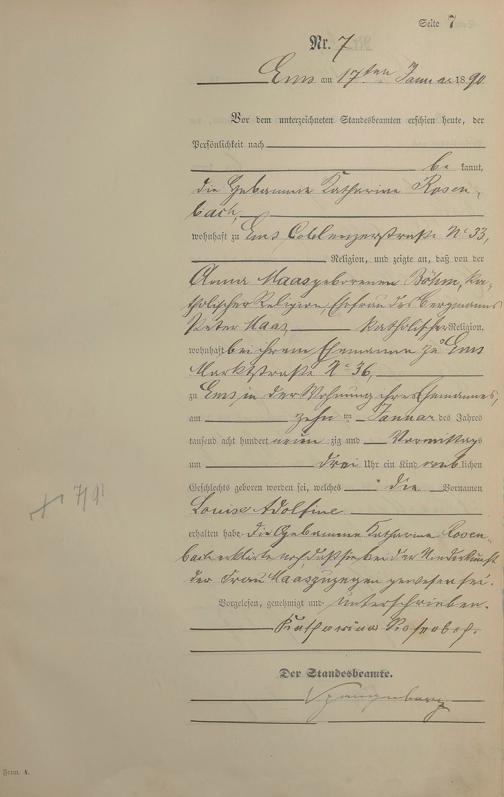 Seite 7
Nr. 7
Ems am 17ten Januar 1890
Vor dem unterzeichneten Standesbeamten erschien heute, der
Persönlichkeit nach
be kannt,
die Hebamme Katharine Rosen-
bach,
wohnhaft zu Ems, Coblenzerstraße No 33,
Religion, und zeigte an, daß von der
Anna Maas geborenen Böhm, ka-
tholischer Religion, Ehefrau des Bergmanns
Peter Maas katholischer Religion,
wohnhaft bei ihrem Ehemanne zu Ems
Marktstraße No 36,
zu Ems, in der Wohnung ihres Ehemannes,
am zehn ten Januar des Jahres
tausend acht hundert neunzig und Vormittags
um drei Uhr ein Kind weiblichen
Geschlechts geboren worden sei, welches die Vornamen
Louise Adolfine
erhalten habe. Die Hebamme Katharine Rosen-
bach erklärte noch, daß sie bei der Niederkunft
der Frau Maas zugegen gewesen sei.
Vorgelesen, genehmigt und unterschrieben.
Katharina
Der Standesbeamte.
Form. A.